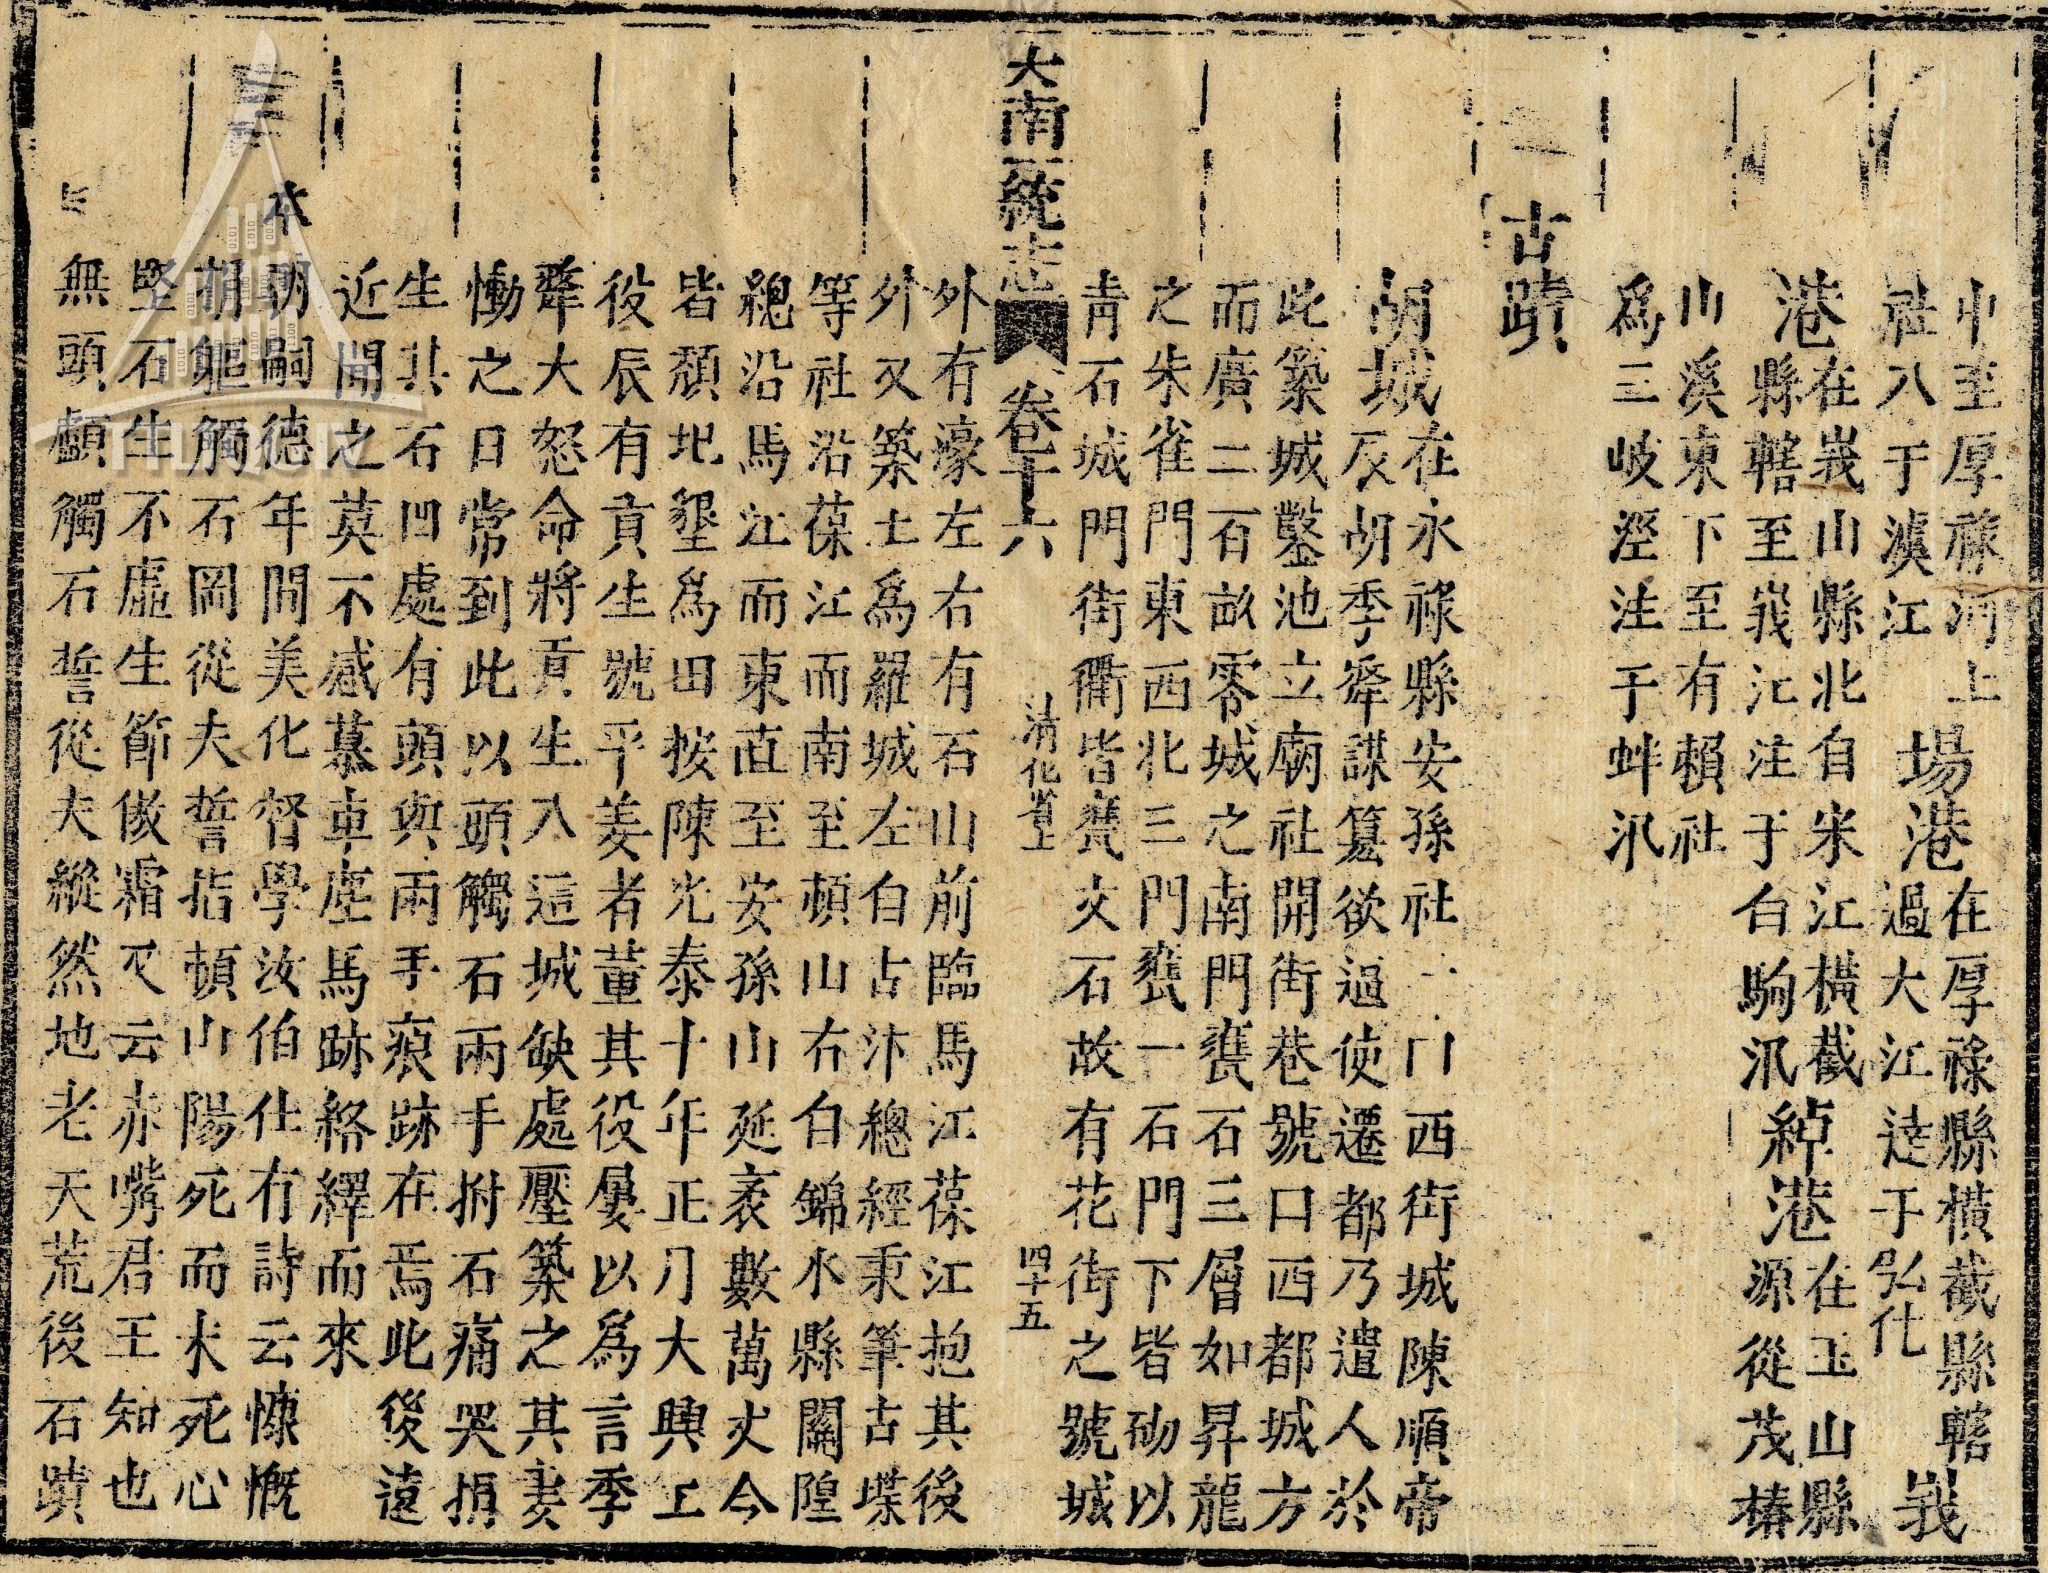 中至厚祿河上
社入于滇江
場港
在厚祿縣橫截縣轄
過大江達于弘化
峩
港
在峩山縣北自宋江橫截
縣轄至峩江注于白駒汛
綽港
在玉山縣
源從茂椿
山溪東下至有賴社
爲三岐逕注于蚌汛
古蹟
胡城
在永祿縣安孫社
門西街城陳順帝
辰胡季犛謀簒欲逼使遷都乃遣人於
此築城鑿池立廟社開街巷號曰西都城方
而廣二百畝零城之南門甃石三層如昇龍
之朱雀門東西北三門甃一石門下皆砌以
青石城門街衢皆甃文石故有花街之號城
大南一統志
卷十六
清化省上
四十五
外有濠左右有石山前臨馬江葆江抱其後
外又築土爲羅城左自古汴總經秉筆古堞
等社沿葆江而南至頓山右自錦水縣關隍
總沿馬江而東直至安孫山延袤數萬丈今
皆頹圯墾爲田按陳光泰十年正月大興工
役辰有貢生號平姜者董其役屢以爲言季
犛大怒命將貢生入這城缺處壓築之其妻
慟之日常到此以頭觸石兩手拊石痛哭捐
生其石凹處有頭與兩手痕跡在焉此後遠
近聞之莫不感慕車塵馬跡絡繹而來
本
朝嗣德年間美化督學汝伯仕有詩云慷慨
捐軀觸石岡從夫誓指頓山陽死而未死心
堅石生不虛生節傲霜又云赤嘴君王知也
無頭顱觸石誓從夫縱然地老天荒後石蹟